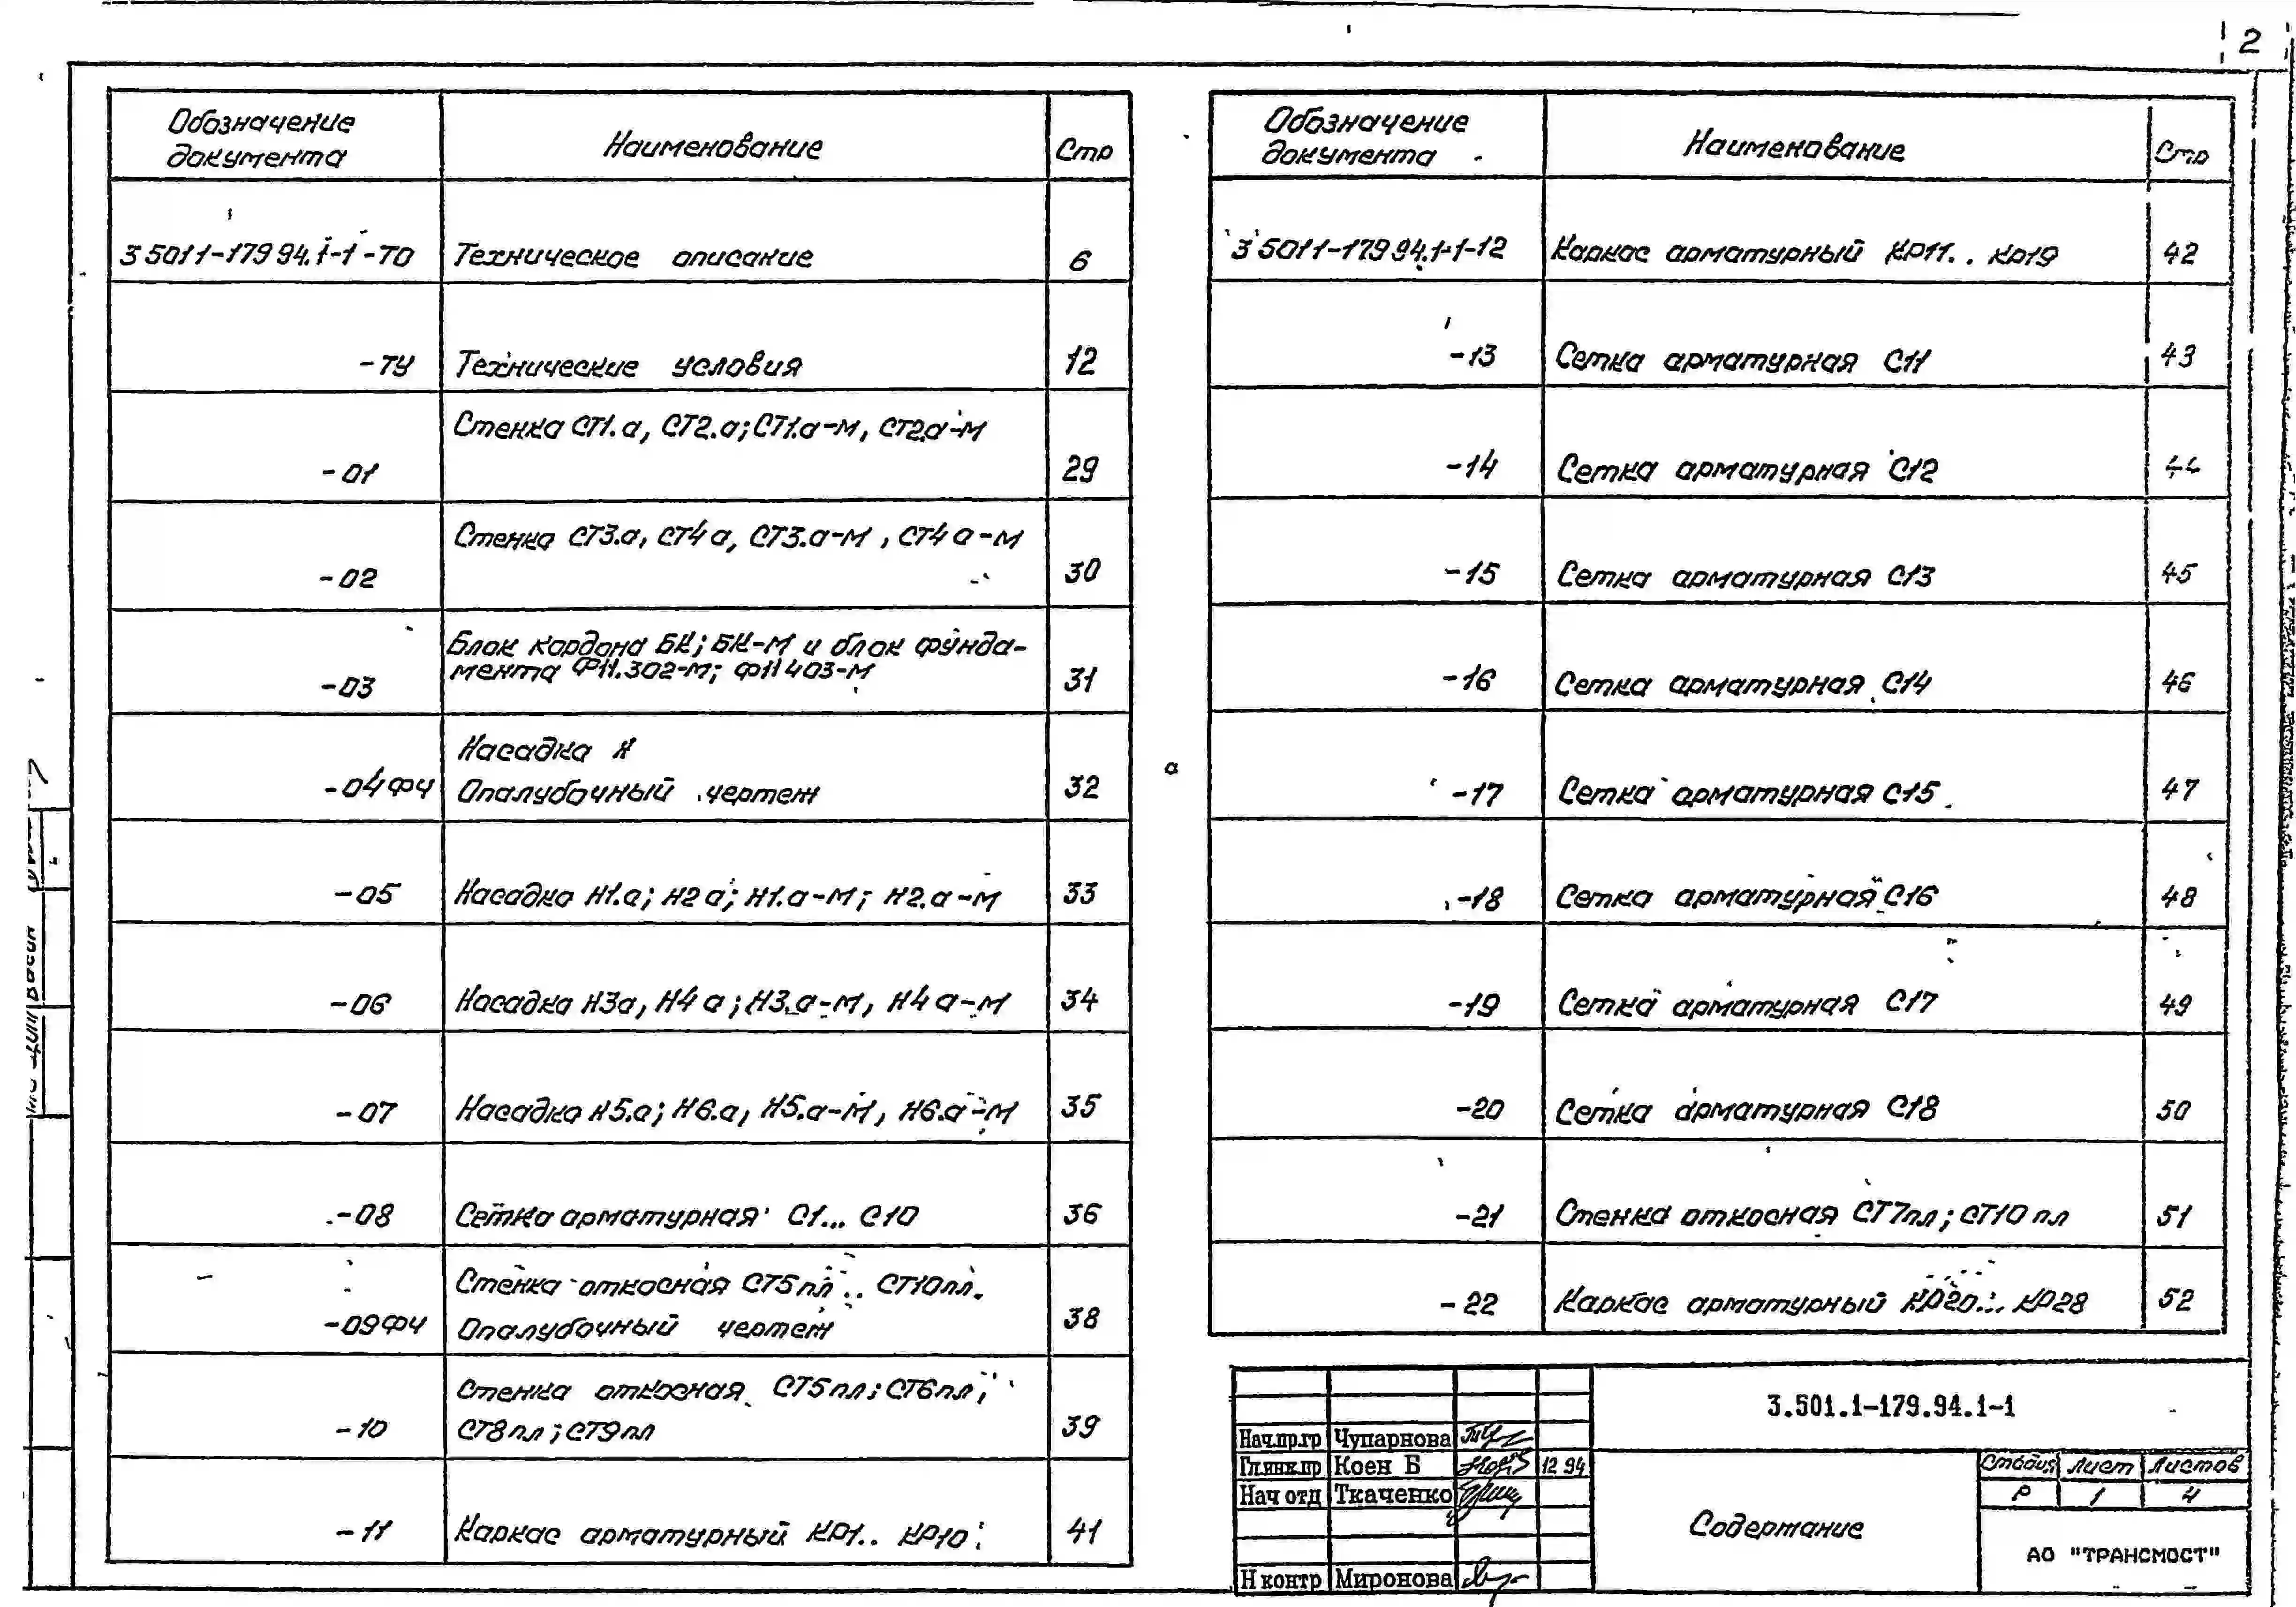 2
Обозначение документа Наименование Стр
3 501 1-179 94.1-1-ТО Техническое описание 6
-ТУ Технические условия 12
-01 Стенка СТ1.а, СТ2.а; СТ1.а-М, СТ2.а-М 29
-02 Стенка СТ3.а, СТ4 а, СТ3.а-М, СТ4 а-М 30
-03 Блок кордона БК; БК-М и блок фунда-
мента Ф11.302-М; Ф11 403-М 31
Насадка Н
-04ФЧ Опалубочный чертеж 32
-05 Насадка Н1.а; Н2 а; Н1.а-М; Н2.а-М 33
-06 Насадка Н3а, Н4 а; Н3.а-М, Н4 а-М 34
-07 Насадка Н5.а; Н6.а, Н5.а-М, Н6.а-М 35
-08 Сетка арматурная С1... С10 36
Стенка откосная СТ5пл .. СТ10пл.
-09ФЧ Опалубочный чертеж 38
Стенка откосная СТ5пл; СТ6пл;
-10 СТ8пл; СТ9пл 39
-11 Каркас арматурный КР1.. КР10 41
Обозначение документа Наименование Стр
3 501 1-179 94.1-1-12 Каркас арматурный КР11.. КР19 42
-13 Сетка арматурная С11 43
-14 Сетка арматурная С12 44
-15 Сетка арматурная С13 45
-16 Сетка арматурная С14 46
-17 Сетка арматурная С15 47
-18 Сетка арматурная С16 48
-19 Сетка арматурная С17 49
-20 Сетка арматурная С18 50
-21 Стенка откосная СТ7пл; СТ10 пл 51
-22 Каркас арматурный КР20... КР28 52
3.501.1-179.94.1-1
Нач.пр.гр Чупарнова
Гл.инж.пр Коен Б 12 94
Нач отд Ткаченко
Н контр Миронова
Содержание
Стадия Лист Листов
Р 1 4
АО "ТРАНСМОСТ"